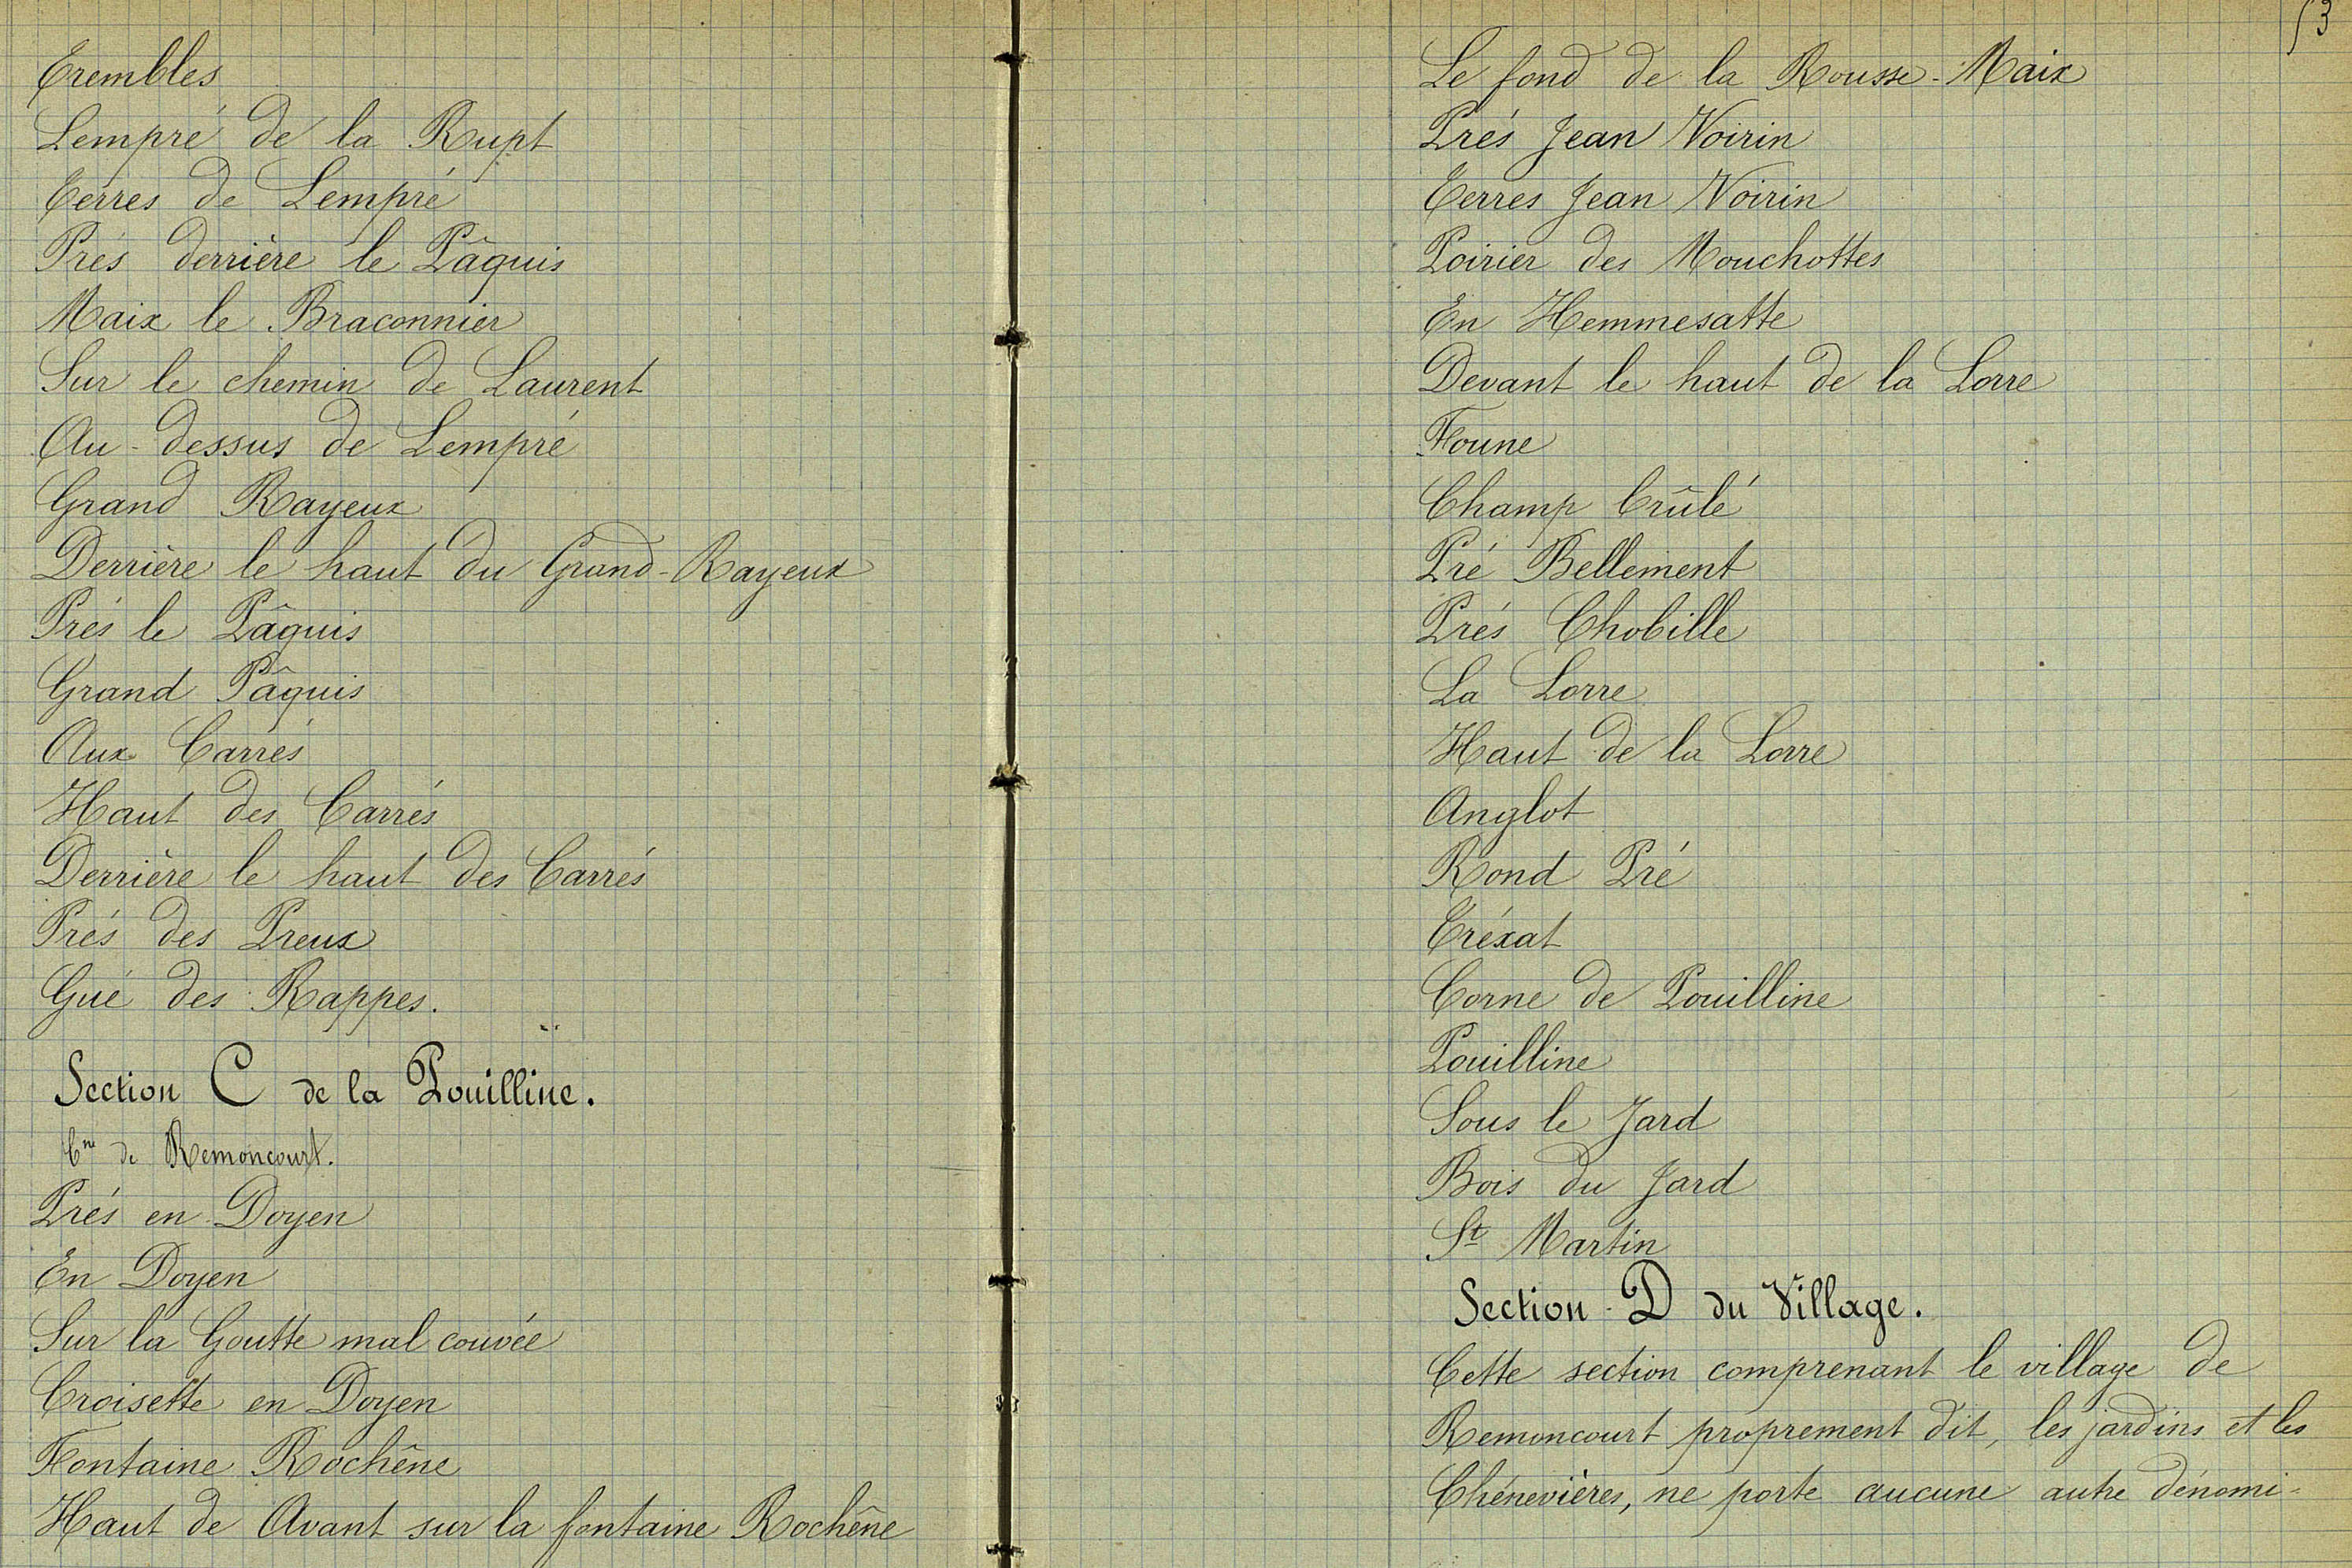 Trembles
Lempré de la Rupt
Terres de Lempré
Prés derrière le Pâquis
Maix le Braconnier
Sur le chemin de Laurent
Au-dessus de Lempré
Grand Rayeux
Derrière le haut du Grand-Rayeux
Prés le Pâquis
Grand Pâquis
Aux Carrés
Haut des Carrés
Derrière le haut des Carrés
Prés des Preux
Gué des Rappes.
Section C de la Pouilline.
Cne de Remoncourt.
Prés en Doyen
En Doyen
Sur la Goutte mal couvée
Croisette en Doyen
Fontaine Rochêne
Haut de Avant sur la fontaine Rochêne
53
Le fond de la Rousse-Maix
Prés Jean Voirin
Terres Jean Voirin
Poirier des Mouchottes
En Hemmesatte
Devant le haut de la Lorre
Foune
Champ brûlé
Pré Bellement
Prés Chobille
La Lorre
Haut de la Lorre
Anglot
Rond Pré
Tréxat
Corne de Pouilline
Pouilline
Sous le Jard
Bois du Jard
St Martin
Section D du Village.
Cette section comprenant le village de
Remoncourt proprement dit, les jardins et les
Chénevières, ne porte aucune autre dénomi-